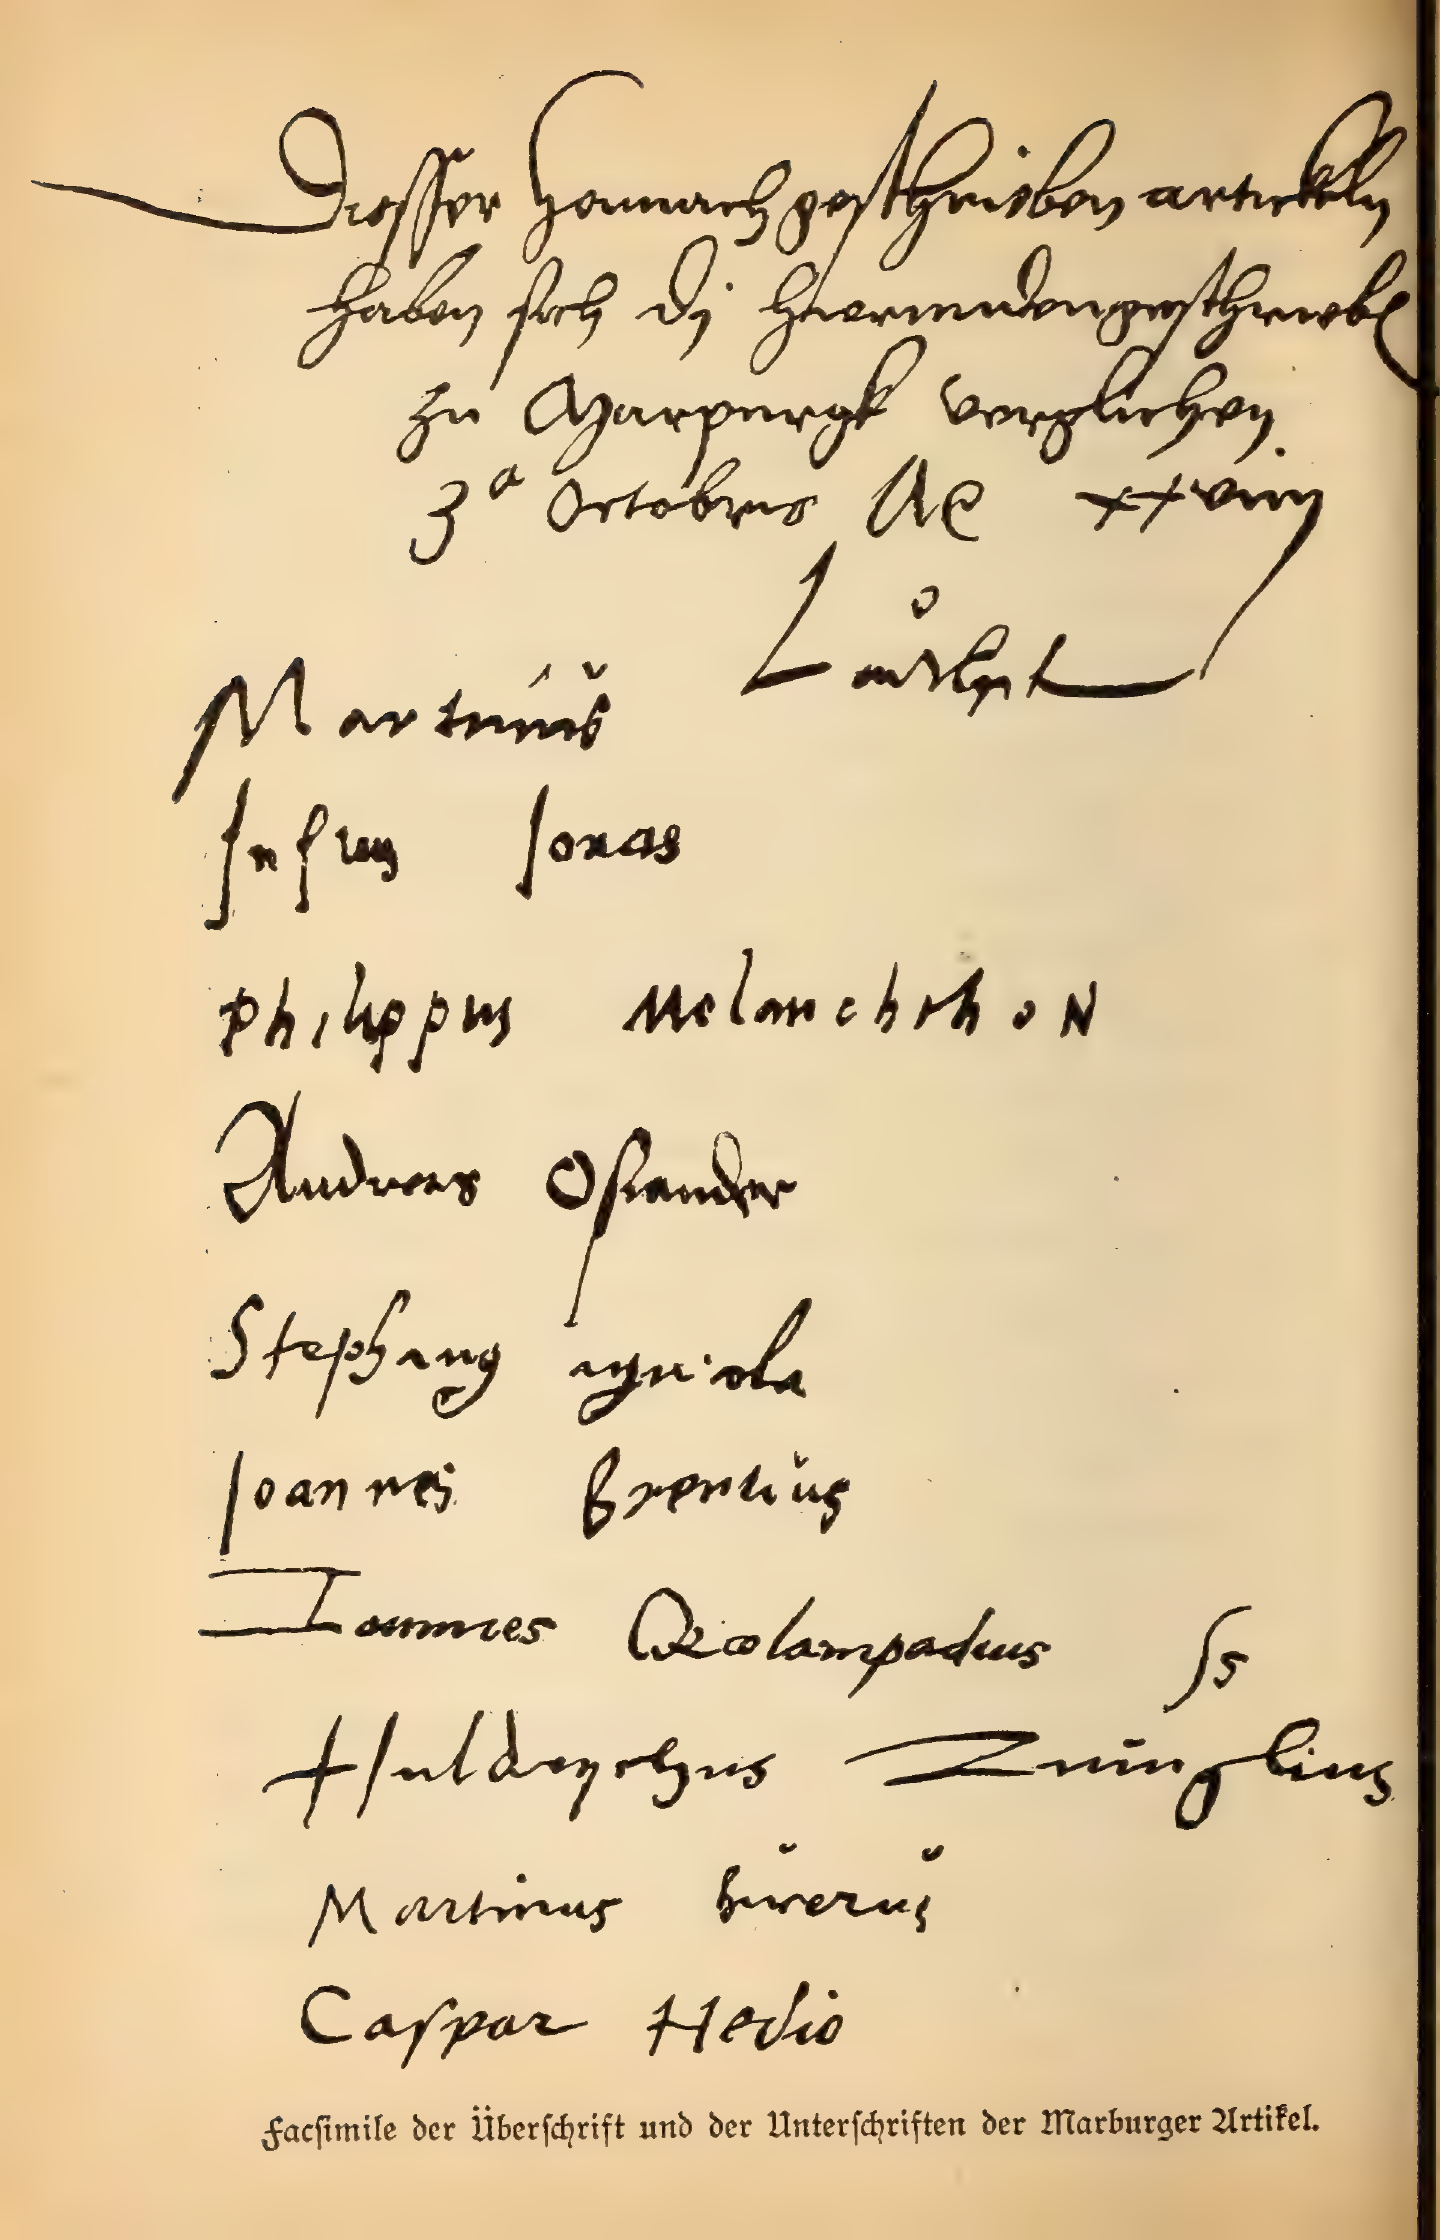 Diesser hernnach geschrieben artickeln
haben sich di hierundengeschrieben
zu Marpurgk verglichen
3ª Octobris xxviiij
Martinus Luther
Justus Jonas
Philippus Melanchthon
Andreas Osiander
Stephanus agricola
Joannes Brentius
Ioannes Oecolampadius ss
Huldrychus Zuinglius
Martinus bucerus
Caspar Hedio
Facsimile der Überschrift und der Unterschriften der Marburger Artikel.